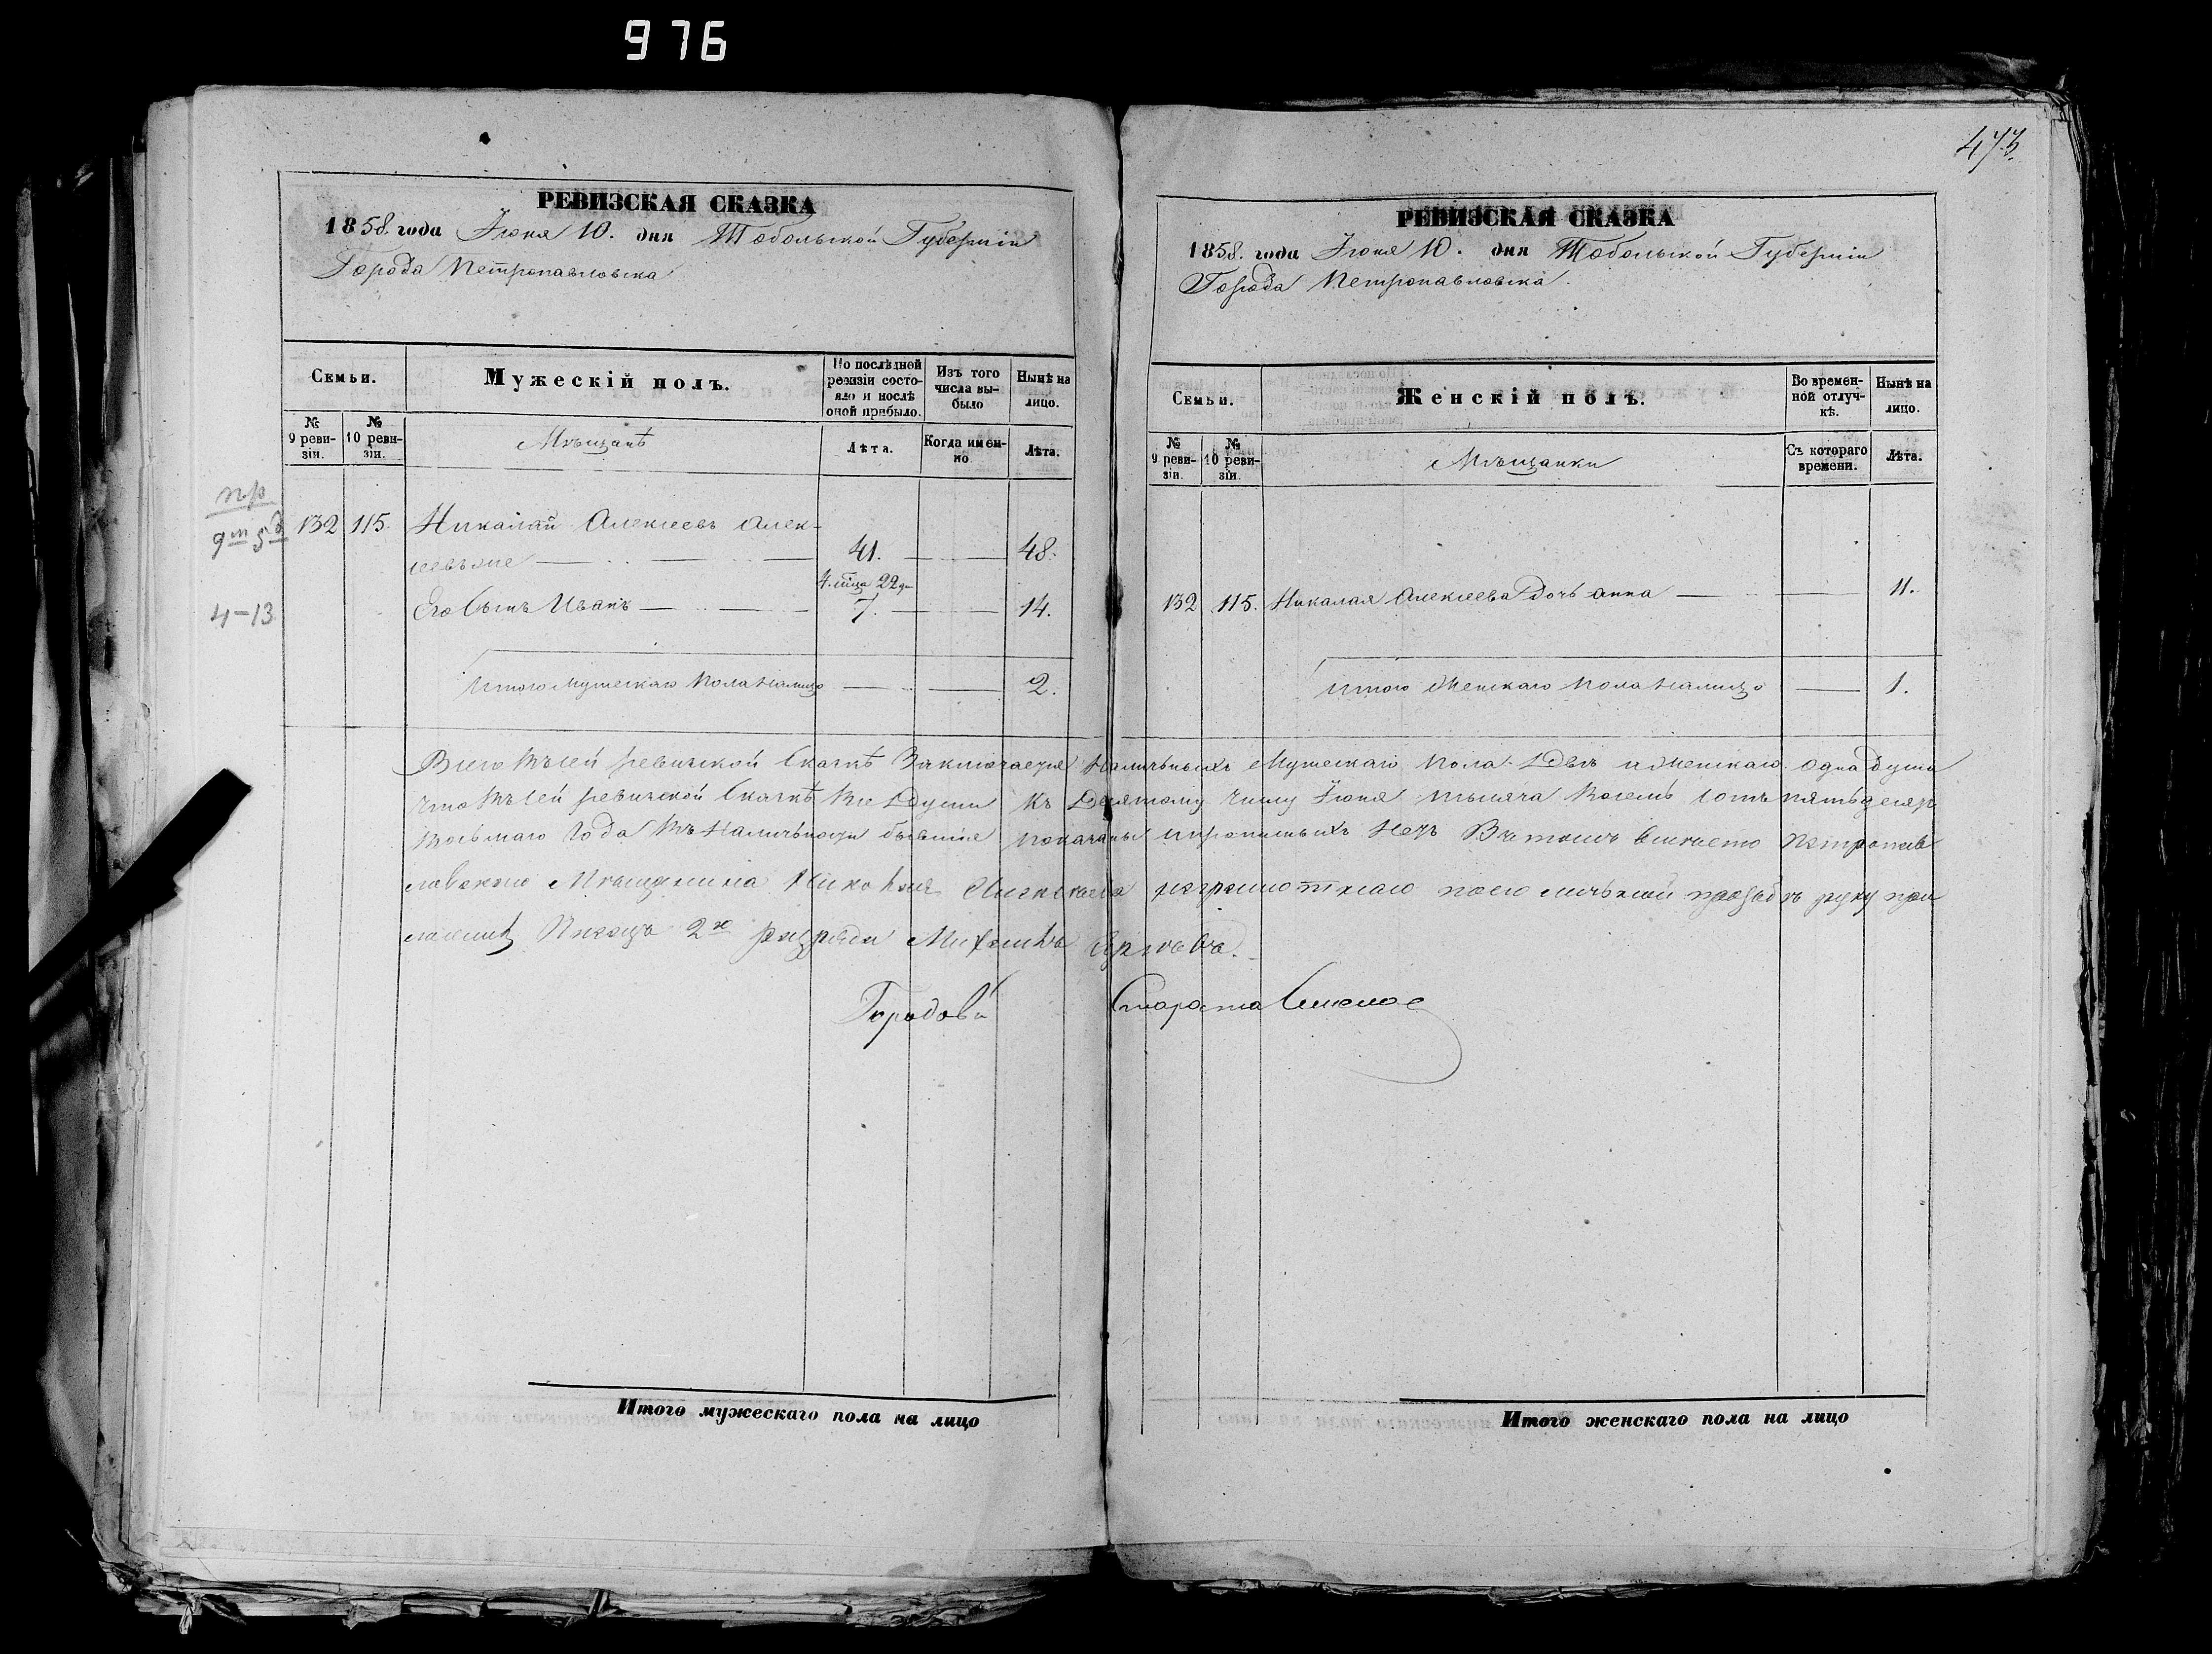 976
РЕВИЗСКАЯ СКАЗКА
1858. года Іюня 10. дня Тобольской Губерніи
Города Петропавловска
Семьи.
Мужескій полъ.
По послѣдней ревизіи состояло и послѣ оной прибыло.
Изъ того числа выбыло
Нынѣ на лицо.
№ 9 ревизіи.
№ 10 ревизіи.
Мѣщанѣ
Лѣта.
Когда именно
Лѣта.
пр
9 5
132 115. Николай Алексеевъ Алек-
сеевъ 41. 48.
4. 22
4-13
Его Сынъ Иванъ 7. 14.
Итого мужескаго пола налицо 2.
473.
РЕВИЗСКАЯ СКАЗКА
1858. года Іюня 10. дня Тобольской Губерніи
Города Петропавловска.
Семьи.
Женскій полъ.
Во временной отлучкѣ.
Нынѣ на лицо.
№ 9 ревизіи.
№ 10 ревизіи.
Мѣщанки
Съ котораго времени.
Лѣта.
132 115. Николая Алексеева Дочь Анна 11.
Итого женскаго пола налицо 1.
Всего въ сей ревизской Сказкѣ Заключается Наличьныхъ Мужескаго пола Двѣ и женскаго одна душа
что въ сей ревизской Сказкѣ все Души къ Десятому числу Іюня тысяча восемь сотъ пятьдесят
восьмаго Года въ Наличьности бывшіе показаны и прописьныхъ нетъ Въ томъ вместо Петропав
ловскаго Мещанина Николая Алексеева неграмотнаго по его личьной прозьбѣ руку при
ложилъ Писецъ 2го разряда Михаилъ
Городовй Староста
Итого мужескаго пола на лицо
Итого женскаго пола на лицо